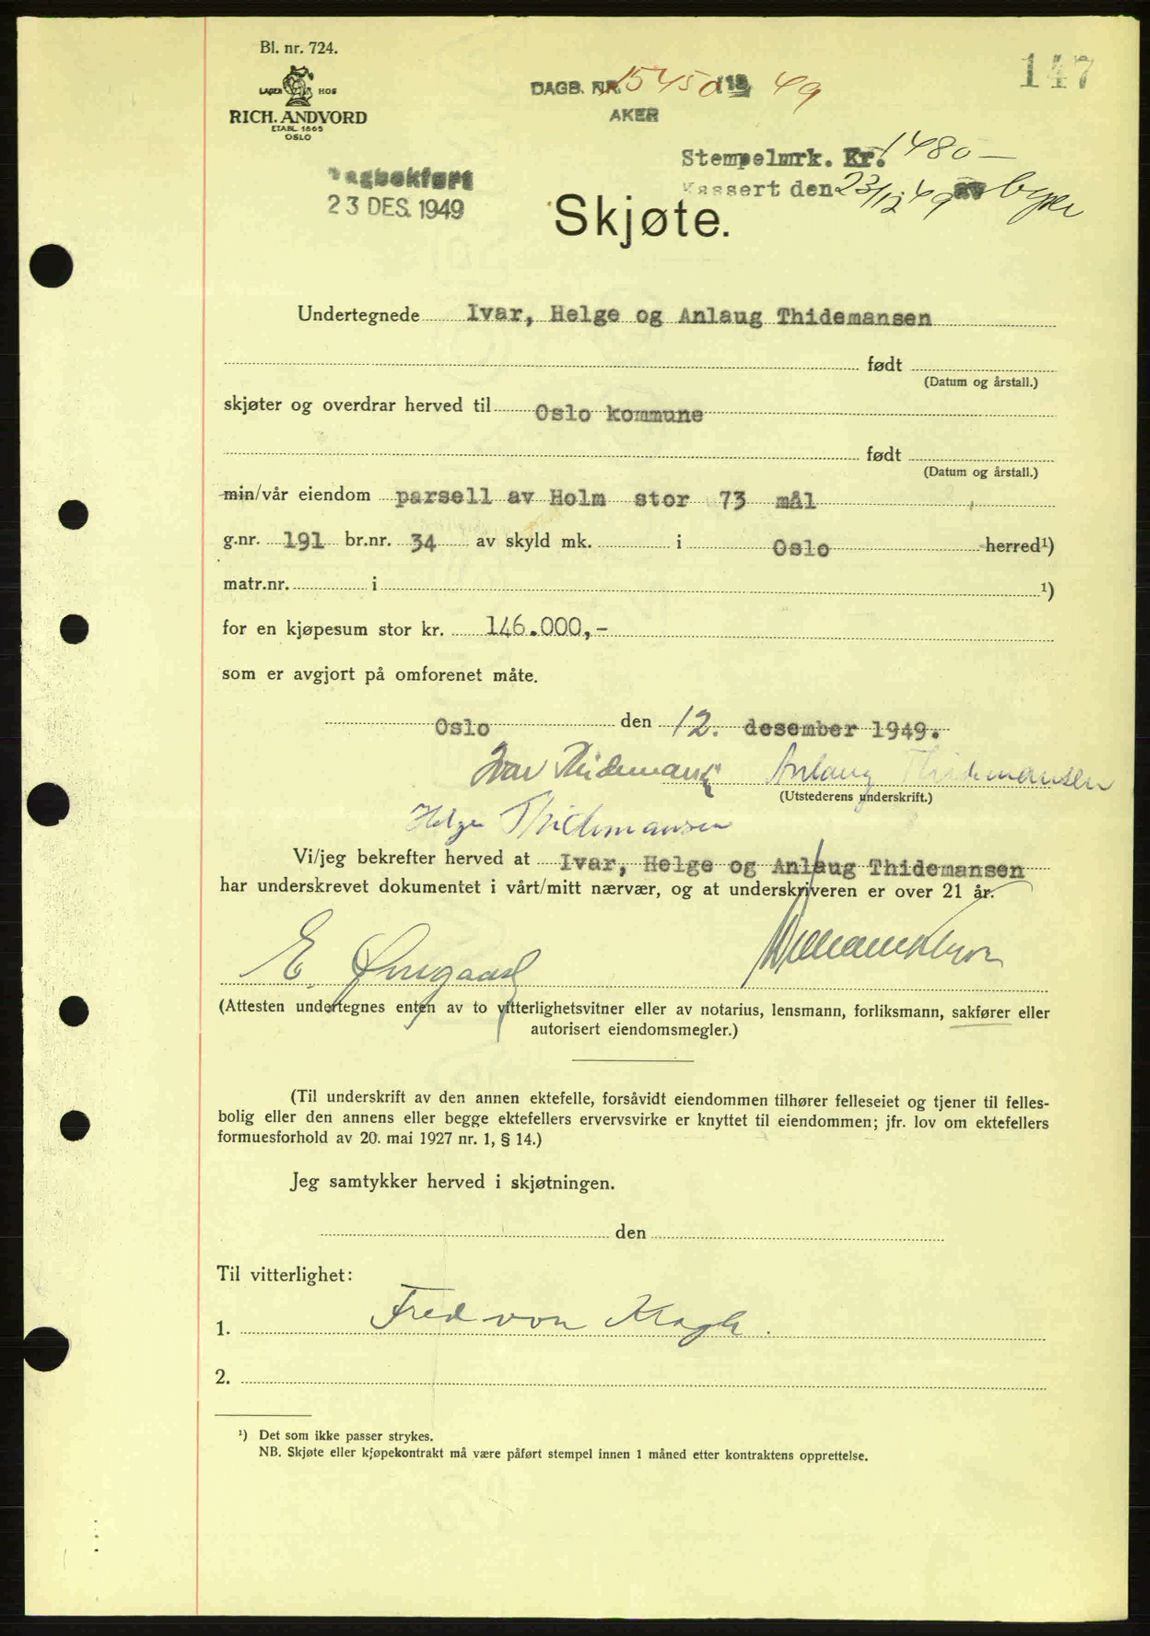 Bl. nr. 724.
147
LAGER HOS
RICH. ANDVORD
ETABL. 1865
OSLO
DAGB. NR. 15450 19 49
AKER
Stempelmrk. Kr. 1480 —
Kassert den 23/12 49 av
Dagbokført
23 DES. 1949
Skjøte.
Undertegnede Ivar, Helge og Anlaug Thidemansen
født
(Datum og årstall.)
skjøter og overdrar herved til Oslo kommune
født
(Datum og årstall.)
min/vår eiendom parsell av Holm stor 73 mål
g.nr. 191 br.nr. 34 av skyld mk. i Oslo herred¹)
matr.nr. i ¹)
for en kjøpesum stor kr. 146.000,-
som er avgjort på omforenet måte.
Oslo den 12. desember 1949.
Ivar Thidemansen Anlaug Thidemansen
(Utstederens underskrift.)
Helge Thidemansen
Vi/jeg bekrefter herved at Ivar, Helge og Anlaug Thidemansen
har underskrevet dokumentet i vårt/mitt nærvær, og at underskriveren er over 21 år.
E.
(Attesten undertegnes enten av to vitterlighetsvitner eller av notarius, lensmann, forliksmann, sakfører eller
autorisert eiendomsmegler.)
(Til underskrift av den annen ektefelle, forsåvidt eiendommen tilhører felleseiet og tjener til felles-
bolig eller den annens eller begge ektefellers ervervsvirke er knyttet til eiendommen; jfr. lov om ektefellers
formuesforhold av 20. mai 1927 nr. 1, § 14.)
Jeg samtykker herved i skjøtningen.
den
Til vitterlighet:
1. Fred von Krogh.
2.
¹) Det som ikke passer strykes.
NB. Skjøte eller kjøpekontrakt må være påført stempel innen 1 måned etter kontraktens opprettelse.